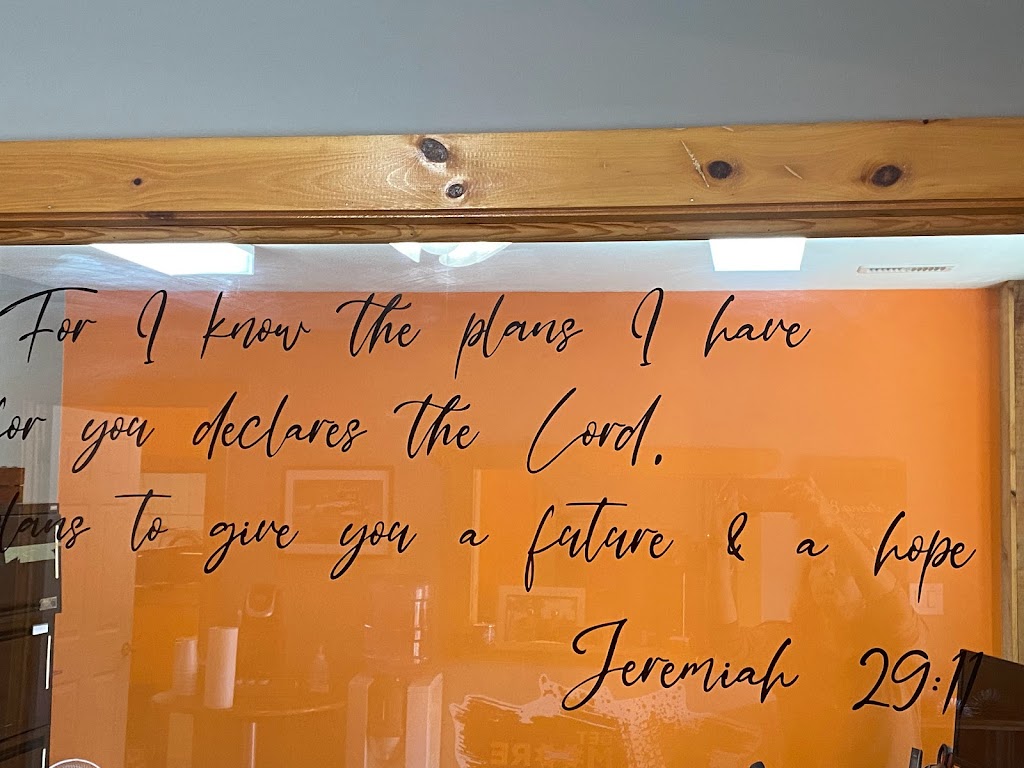 For I know the plans I have
for you declares the Lord.
plans to give you a future & a hope
Jeremiah 29:11